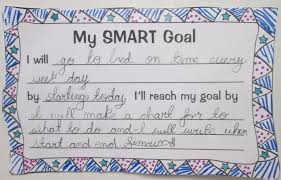 My SMART Goal
I will go to bed on time every
week day
by starting today I'll reach my goal by
I will make a chart for to
what to do and I will write when
start and end